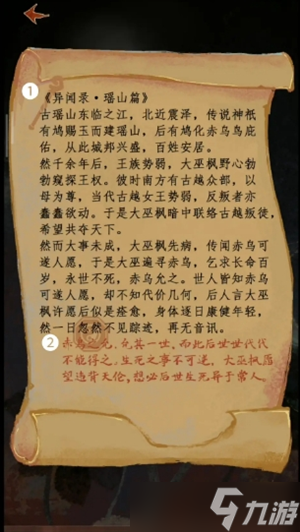 1
《异闻录·瑶山篇》
古瑶山东临之江，北近震泽，传说神祇
有鸠赐玉而建瑶山，后有鸠化赤乌鸟庇
佑，从此城邦兴盛，百姓安居。
然千余年后，王族势弱，大巫枫野心勃
勃窥探王权。彼时南方有古越众部，以
母为尊，当代古越女王势弱，反叛者亦
蠢蠢欲动。于是大巫枫暗中联络古越叛徒，
希望共夺天下。
然而大事未成，大巫枫先病，传闻赤乌可
遂人愿，于是大巫遍寻赤乌，乞求长命百
岁，永世不死，赤乌允之。世人皆知赤乌
可遂人愿，却不知代价几何，后人言大巫
枫许愿后似是痊愈，身体逐日康健年轻，
然一日忽然不见踪迹，再无音讯。
2
赤乌之允，允其一世，而拒后世世代代
不能得之，生死之事不可逆，大巫枫愿
望违背天伦，想必后世生死异于常人。
九游